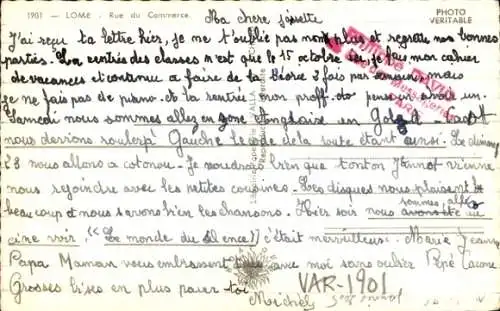 1901 — LOME. - Rue du Commerce.
PHOTO VERITABLE
Ma chère josette
J'ai reçu ta lettre hier, je ne t'oublie pas non plus et regrette nos bonnes
parties. La rentrée des classes n'est que le 15 octobre je fais mon cahier
de vacances et continu a faire de la 3 fois par semaine mais
je ne fais pas de piano et la rentrée mon proff. do
Samedi nous sommes allez en zone Anglaise en Gold
nous devrions rouler à Gauche le code de la route étant ainsi. Le
28 nous allons a cotonou. Je voudrais bien que tonton vienne
nous rejoindre avec les petites cousines. Les disques nous plaisent
beaucoup et nous savons bien les chansons. Hier soir nous sommes allé au
ciné voir, "Le monde du silence" c'était merveilleux.
Papa Maman vous embrassent avec moi sans oublier Pépé
Grosses bises en plus pour toi
Michèle
VAR-1901